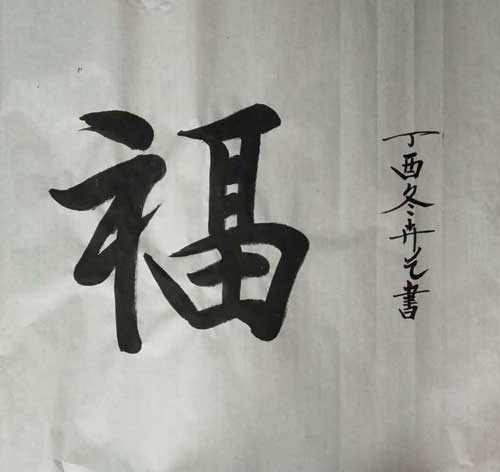 福
丁酉冬卉艺書